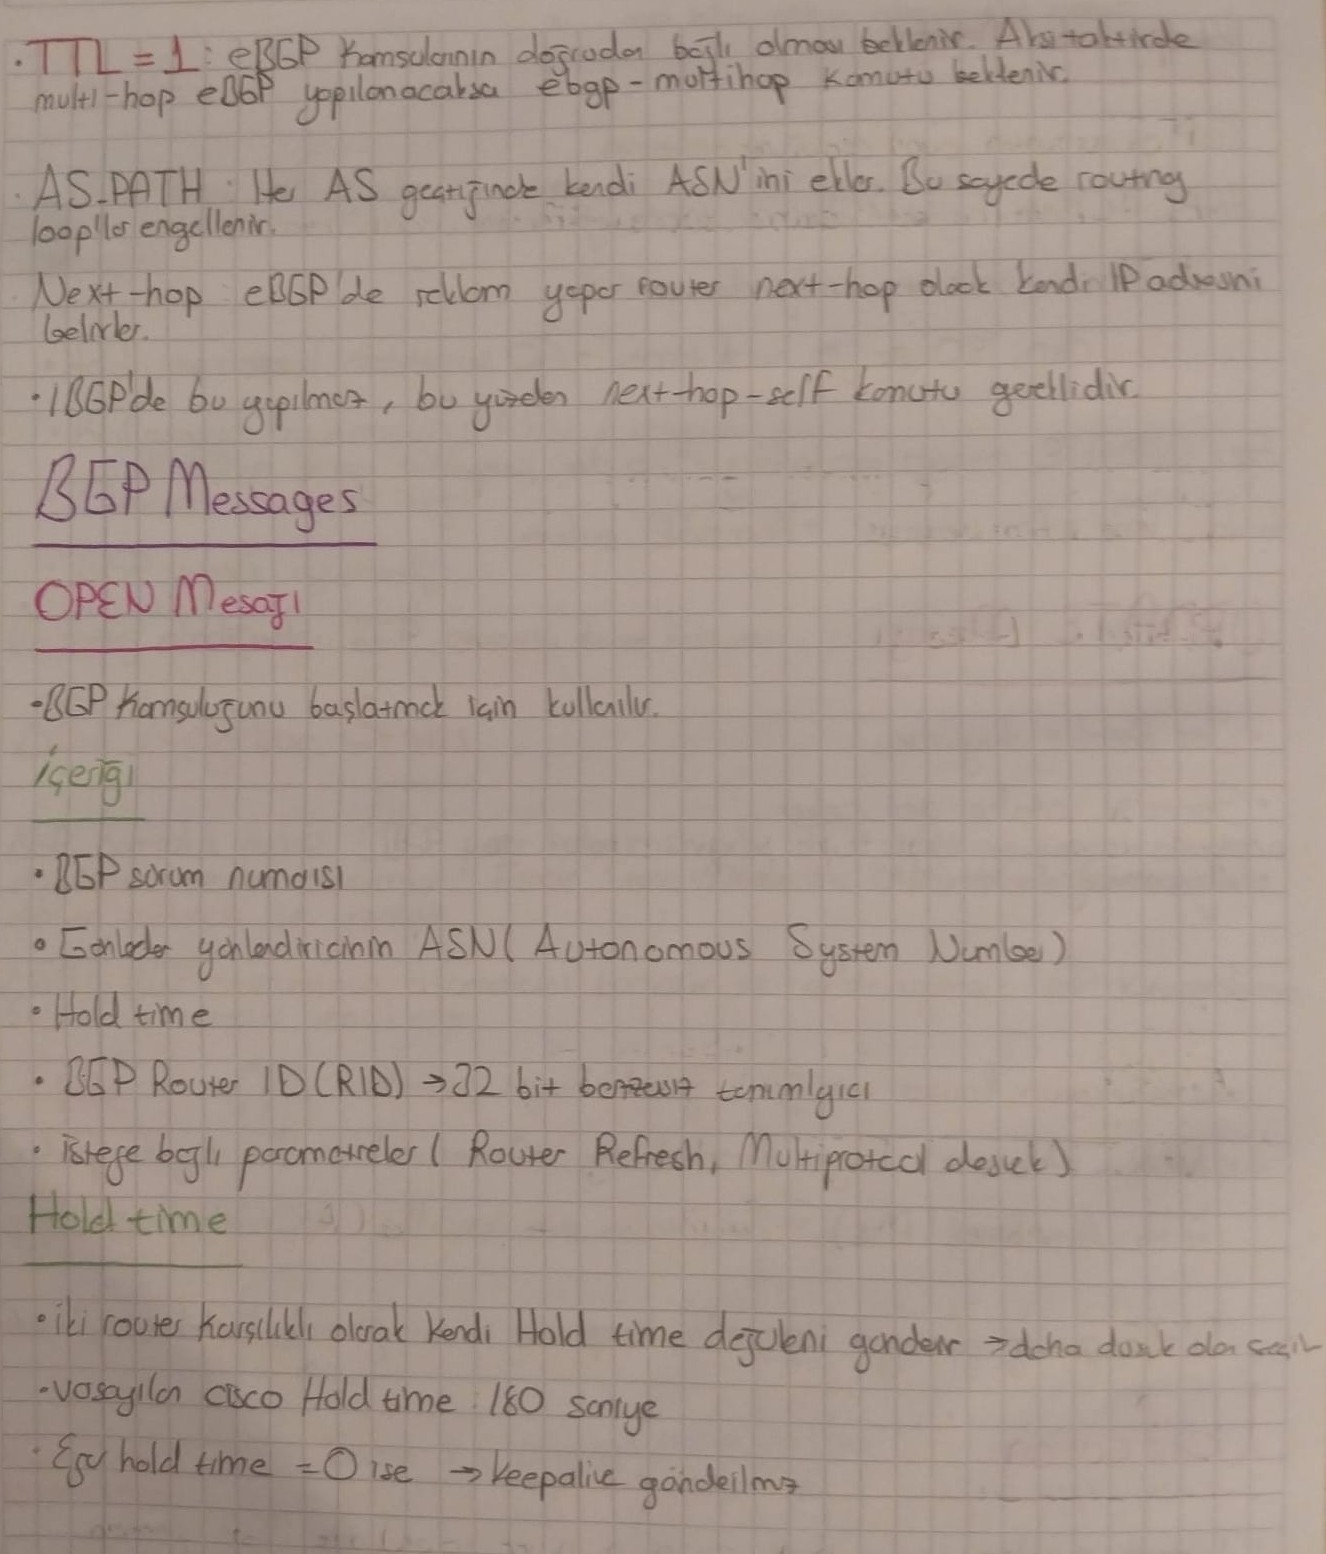 · TTL = 1 : eBGP komşularının doğrudan bağlı olması beklenir. Aksi taktirde
multi-hop eBGP yapılanacaksa ebgp-multihop komutu beklenir.
· AS-PATH : Her AS geçtiğinde kendi ASN'ini ekler. Bu sayede routing
loop'lar engellenir.
Next-hop eBGP'de reklam yapar router next-hop olarak kendi IP adresini
belirler.
· IBGP'de bu yapılmaz, bu yüzden next-hop-self komutu gereklidir.
BGP Messages
OPEN Mesajı
- BGP Komşuluğunu başlatmak için kullanılır.
İçeriği
· BGP sürüm numarısı
· Gönleder yönlendiricinin ASN (Autonomous System Number)
· Hold time
· BGP Router ID (RID) → 32 bit benzersiz tanımlayıcı
· isteğe bağlı parametreler ( Router Refresh, Multiprotocol destek)
Hold time
· iki router karşılıklı olarak kendi Hold time değerleni gönderir → daha düşük olan seçilir
- varsayılan cisco Hold time : 180 saniye
· Eğer hold time = 0 ise → keepalive gönderilmez